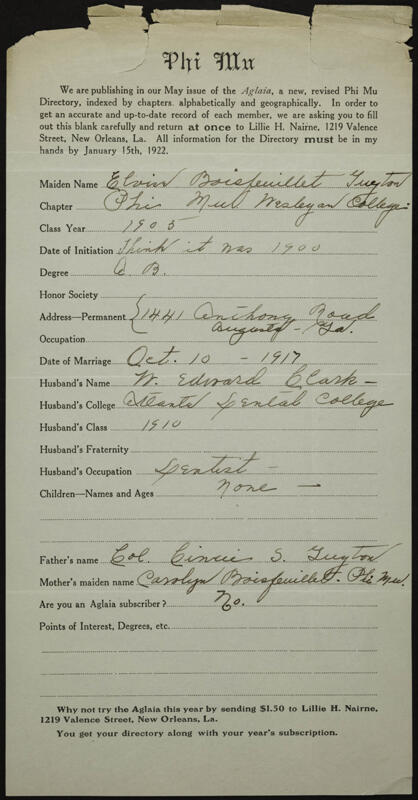 Phi Mu
We are publishing in our May issue of the Aglaia, a new, revised Phi Mu
Directory, indexed by chapters alphabetically and geographically. In order to
get an accurate and up-to-date record of each member, we are asking you to fill
out this blank carefully and return at once to Lillie H. Nairne, 1219 Valence
Street, New Orleans, La. All information for the Directory must be in my
hands by January 15th, 1922.
Maiden Name Elvin Boisfeuillet Guyton
Chapter Phi Mu. Wesleyan College.
Class Year 1905
Date of Initiation Think it was 1900
Degree A. B.
Honor Society
Address—Permanent { 1441 Anthony Road
Augusta - Ga.
Occupation
Date of Marriage Oct. 10 - 1917
Husband's Name W. Edward Clark -
Husband's College Atlanta Dental College
Husband's Class 1910
Husband's Fraternity
Husband's Occupation Dentist -
Children—Names and Ages None -
Father's name Col. Cincie S. Guyton
Mother's maiden name Carolyn Boisfeuillet - Phi Mu.
Are you an Aglaia subscriber? No.
Points of Interest, Degrees, etc.
Why not try the Aglaia this year by sending $1.50 to Lillie H. Nairne,
1219 Valence Street, New Orleans, La.
You get your directory along with your year's subscription.